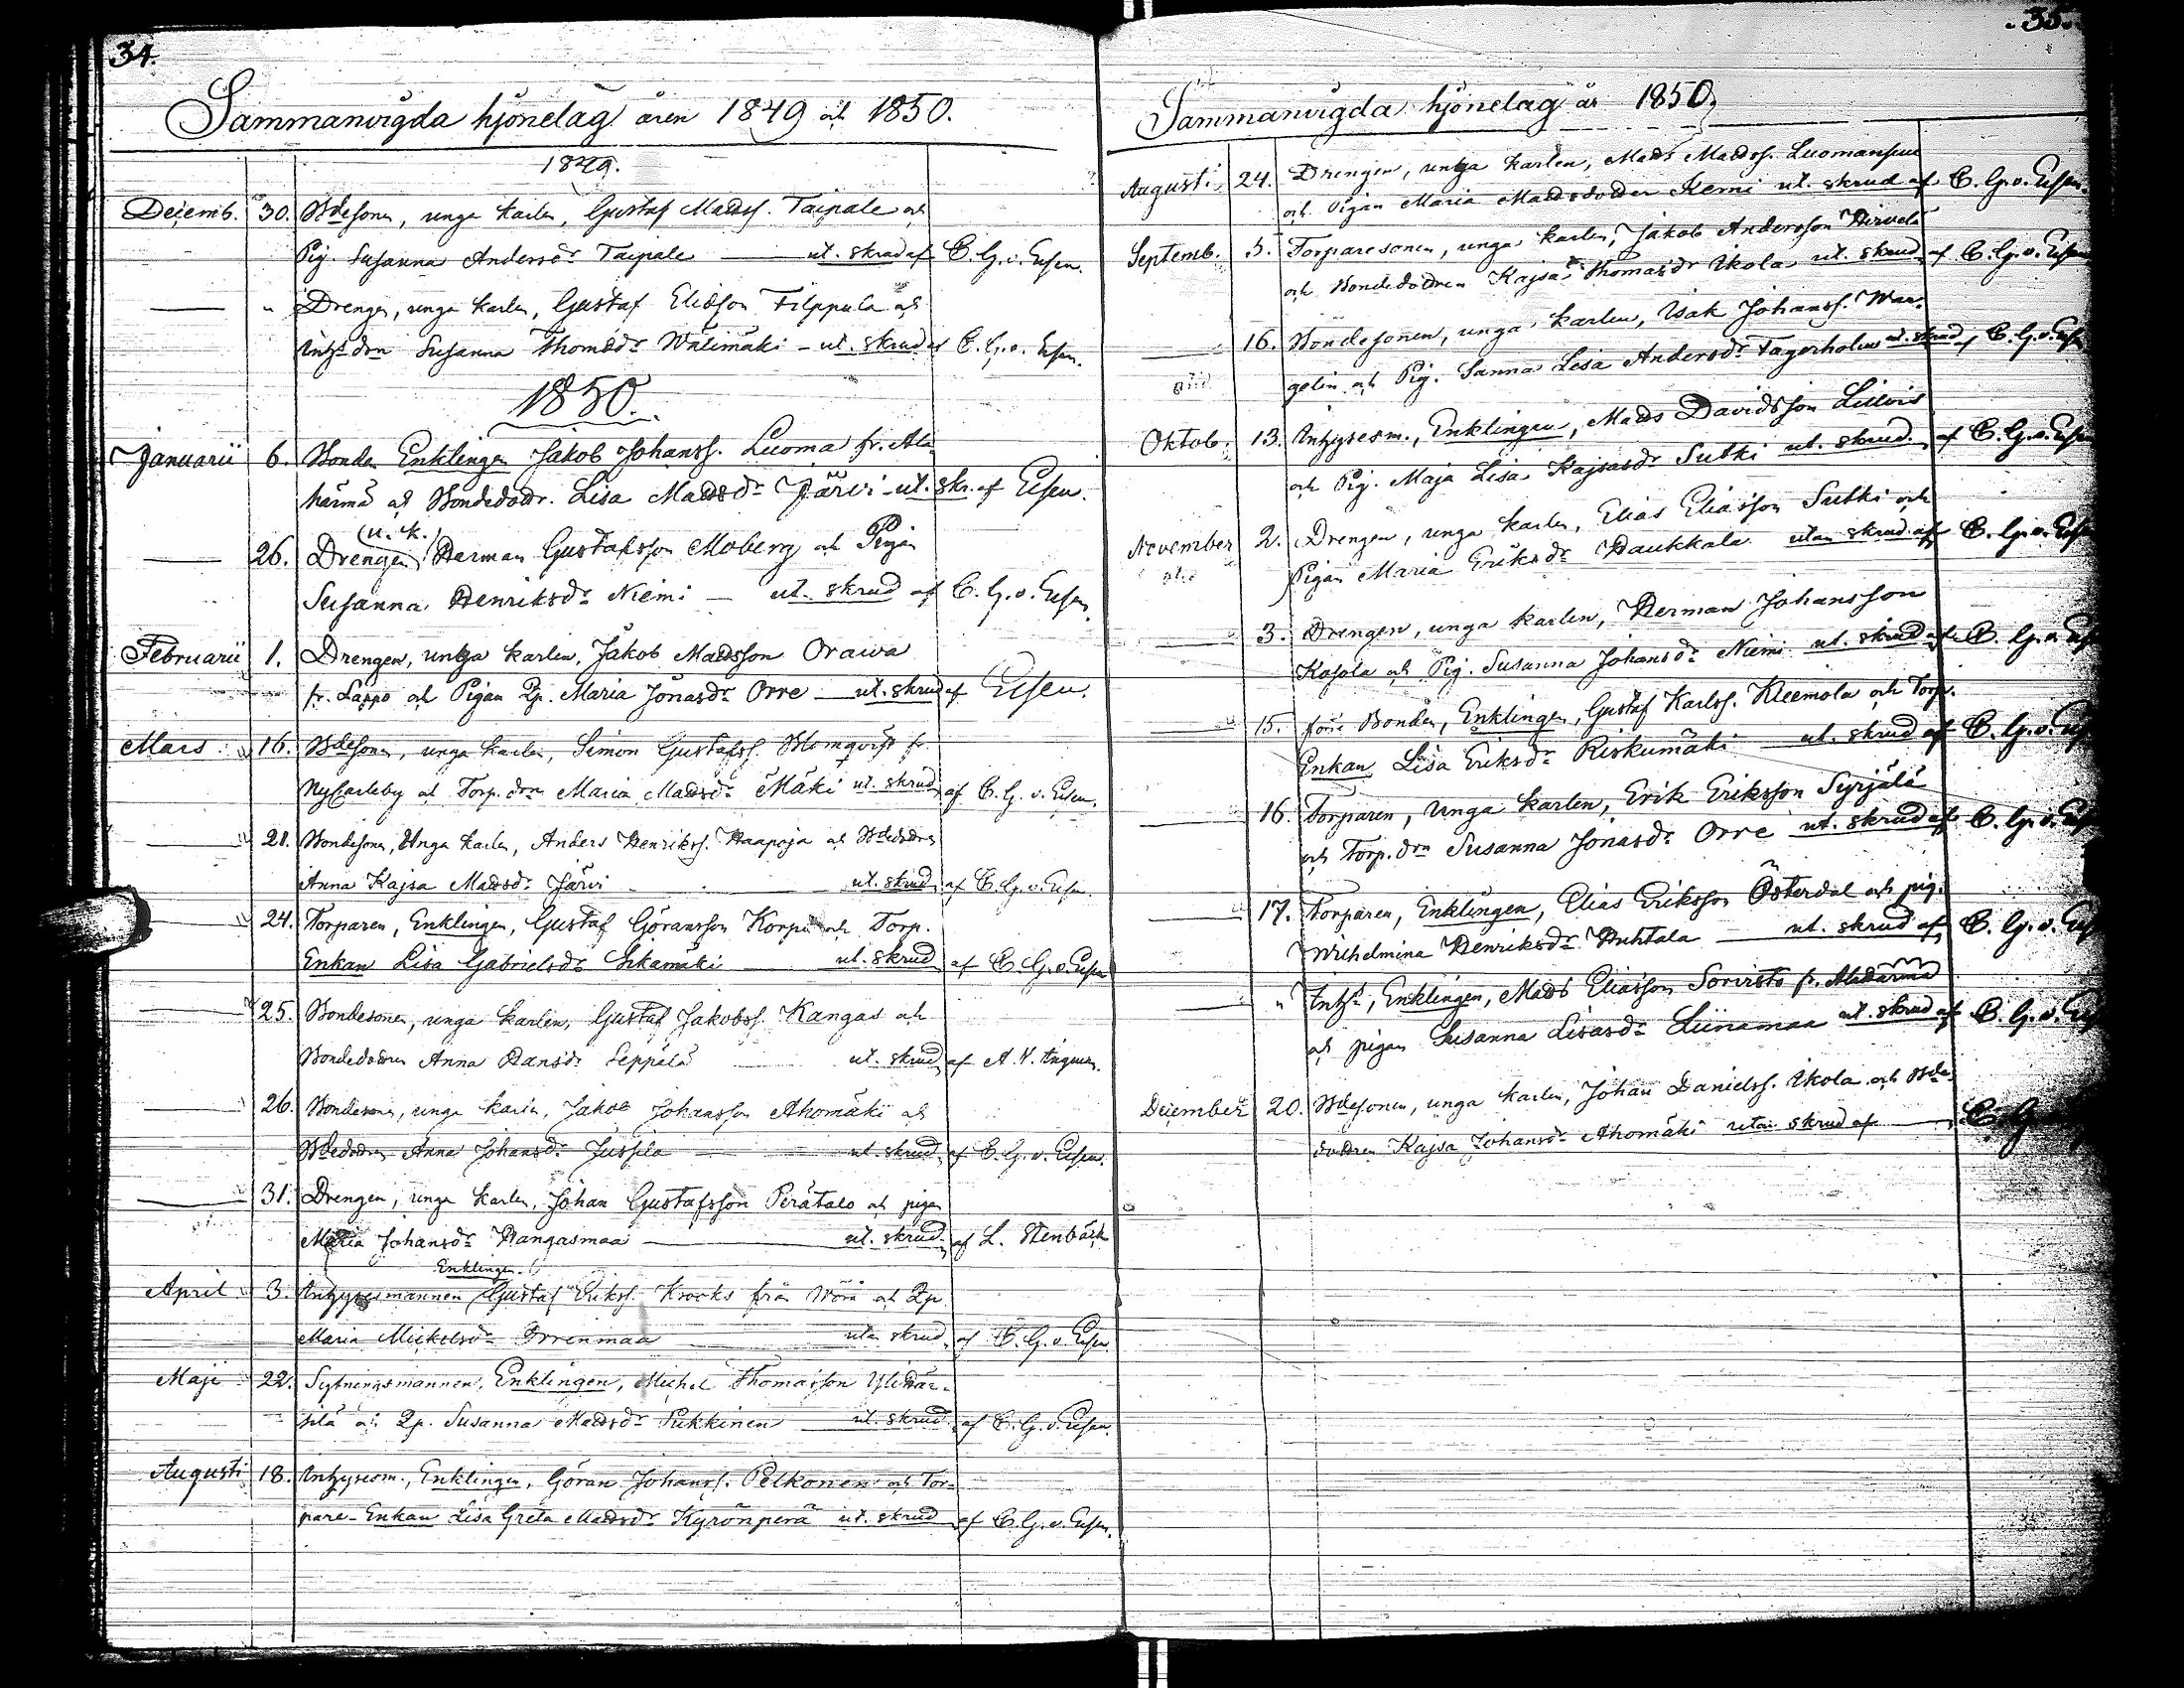 34.
Sammanvigda hjönelag åren 1849 och 1850.
1849.
Decemb. 30. Bdesonen, unga karlen, Gustaf Madss. Taipale och
Pig. Susanna Andersdr Taipale — ut. skrud af C. G. v. Essen.
— " Drengen, unga karlen, Gustaf Eliasson Filppula och
Inhs. dren Susanna Thomasdr Wälimäki - ut. skrud af C. G. v. Essen.
1850.
Januarii 6. Bonden Enklingen Jakob Johanss. Luoma fr. Ala-
härmä och Bondedottr. Lisa Madsdr Järvi - ut. skr. af Essen.
(u. k.)
— 26. Drengen Herman Gustafsson Moberg och Pigan
Susanna Henriksdr Niemi — ut. skrud af C. G. v. Essen.
Februarii 1. Drengen, unga karlen, Jakob Madsson Orawa
fr. Lappo och Pigan Qp. Maria Jonasdr Orre — ut. skrud af Essen.
Mars 16. Bdesonen, unga karlen, Simon Gustafss. Blomqvist fr.
NyCarleby och Torp. drn Maria Madsdr Mäki ut. skrud af C. G. v. Essen.
— 21. Bondesonen, Unga karlen, Anders Henrikss. Haapoja och Bdedodren
Anna Kajsa Madsdr Järvi — ut. skrud af C. G. v. Essen.
— 24. Torparen, Enklingen, Gustaf Göransson Korpi och Torp.
Enkan Lisa Gabrielsdr Iskamäki — ut. skrud af C. G. v. Essen
— 25. Bondesonen, unga karlen, Gustaf Jakobss. Kangas och
Bondedodren Anna Hansdr Seppälä — ut. skrud af A. W. Ingman.
— 26. Bondesonen, unga karlen, Jakob Johansson Ahomäki och
Bdedodren Anna Johansdr Jussila — ut. skrud af C. G. v. Essen.
— 31. Drengen, unga karlen, Johan Gustafsson Perätalo och pigan
Maria Johansdr Kangasmaa — ut. skrud af L. Stenbäck
Enklingen
April 3. Inhysesmannen Gustaf Erikss. Krooks från Wörå och Qp.
Maria Mickelsdr — utan skrud af C. G. v. Essen
Maji 22. Sytningsmannen, Enklingen, Michel Thomasson Ylihär-
silä och Qp. Susanna Madsdr Pukkinen — ut. skrud af C. G. v. Essen.
Augusti 18. Inhysesm., Enklingen, Göran Johanss. Pelkonen och Tor-
pare-Enkan Lisa Greta Madsdr Kyrönperä ut. skrud af C. G. v. Essen.
35.
Sammanvigda hjönelag år 1850.
Augusti 24. Drengen, unga karlen, Mads Madss. Luomansuu
och Pigan Maria Madsdodder Kemi ut. skrud af C. G. v. Essen.
Septemb. 5. Torparesonen, unga karlen, Jakob Andersson Hirvelä
och Bondedodren Kajsa Thomasdr Ikola ut. skrud af C. G. v. Essen
— 16. Bondesonen, unga karlen, Isak Johanss. Wan-
gelin och Pig. Sanna Lisa Andersdr Fagerholm ut. skrud af C. G. v. Essen
Oktob. 13. Inhysesm., Enklingen, Mads Davidsson
och Pig. Maja Lisa Kajsasdr Sutki ut. skrud af C. G. v. Essen
November 2. Drengen, unga karlen, Elias Eliasson Sutki och
Pigan Maria Eriksdr Haukkala utan skrud af C. G. v. Essen
— 3. Drengen, unga karlen, Herman Johansson
Kasola och Pig. Susanna Johansdr Niemi ut. skrud af C. G. v. Essen
— 15. förre Bonden, Enklingen, Gustaf Karlss. Kleemola och Torp.
Enkan Lisa Eriksdr Riskumäki — ut. skrud af C. G. v. Essen
— 16. Torparen, Unga karlen, Erik Eriksson Syrjälä
och Torp. drn Susanna Jonasdr Orre ut. skrud af C. G. v. Essen
— 17. Torparen, Enklingen, Elias Eriksson Österdal och pig.
Wilhelmina Henriksdr Huhtala — ut. skrud af C. G. v. Essen
— " Inhs., Enklingen, Mads Eliasson Soriristo fr. Alahärmä
och pigan Susanna Lisasdr Liinamaa ut. skrud af C. G. v. Essen
December 20. Bdesonen, unga karlen, Johan Danielss. Ikola och Bde-
dodren Kajsa Johansdr Ahomäki utan skrud af — C. G.